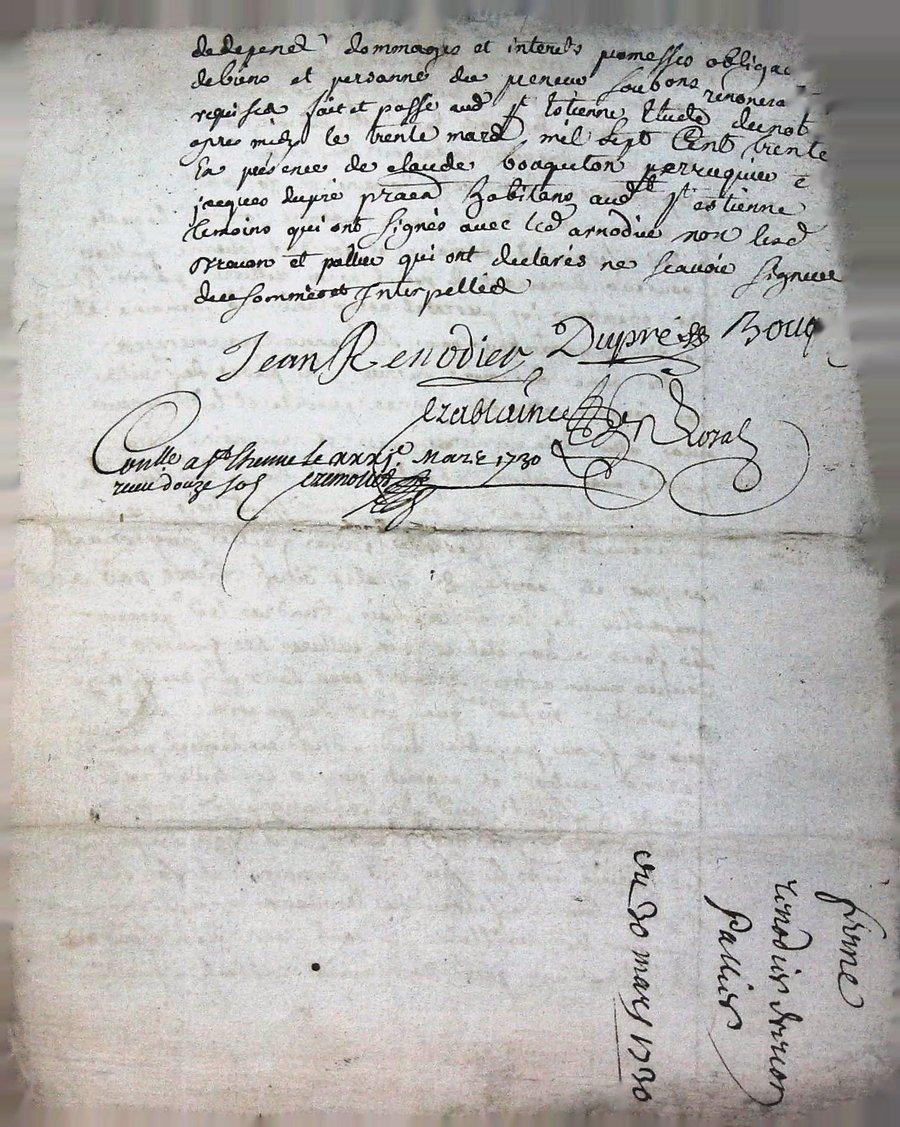 de depend dommages et interets promesses obligac
de biens et personne du preneur soubons renoncia
requises fait et passe aud St Estienne Etude du not
apres midy le trente mars mil sept Cent trente
En presence de claude perruquier e
jacques dupre praen habitans aud St estienne
temoins qui ont signés avec led arnodier non led
et pallier qui ont declarés ne scavoir signer
de ce sommés et Interpellés
Jean Renodier Dupré Bouq
Conlle a St Etienne le xxxje Mars 1730
receu douze sols
ferme
renodier
pallier
du 30 mars 1730